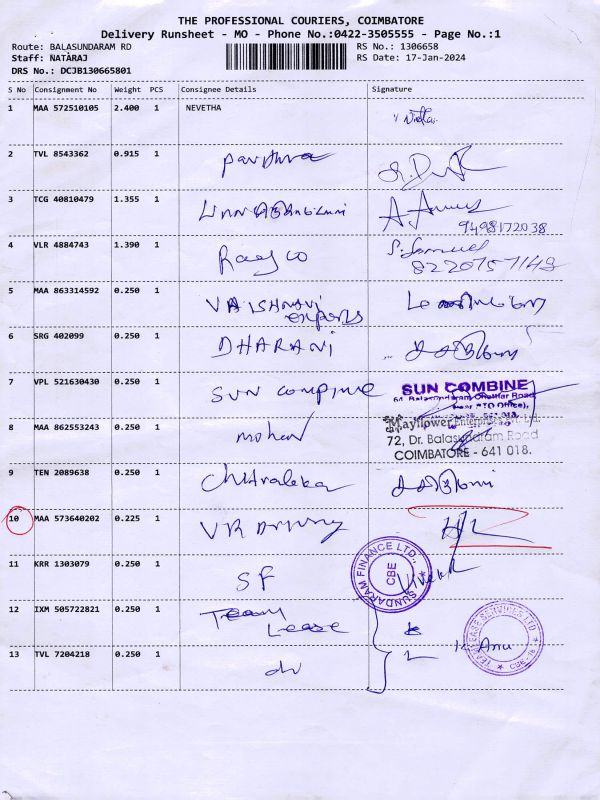 THE PROFESSIONAL COURIERS, COIMBATORE
Delivery Runsheet - MO - Phone No.:0422-3505555 - Page No.:1
Route: BALASUNDARAM RD
RS No.: 1306658
Staff: NATARAJ
RS Date: 17-Jan-2024
DRS No.: DCJB130665801
S No Consignment No Weight PCS Consignee Details Signature
1 MAA 572510105 2.400 1 NEVETHA
2 TVL 8543362 0.915 1
3 TCG 40810479 1.355 1
9498172038
4 VLR 4884743 1.390 1
S. Samuel
8220757149
5 MAA 863314592 0.250 1 VAISHNAVI
exports
6 SRG 402099 0.250 1 DHARANI
7 VPL 521630430 0.250 1 SUN COMPINE SUN COMBINE
8 MAA 862553243 0.250 1 mohan Mayflower Enterprises Pvt. Ltd.
72, Dr. Balasundaram Road
COIMBATORE - 641 018.
9 TEN 2089638 0.250 1 Chitraleka
10 MAA 573640202 0.225 1 VR
11 KRR 1303079 0.250 1 SF SUNDARAM FINANCE LTD., CBE Vivek
12 IXM 505722821 0.250 1 Team
Lease Anu TEAM LEASE SERVICES LTD CBE-18
13 TVL 7204218 0.250 1 do